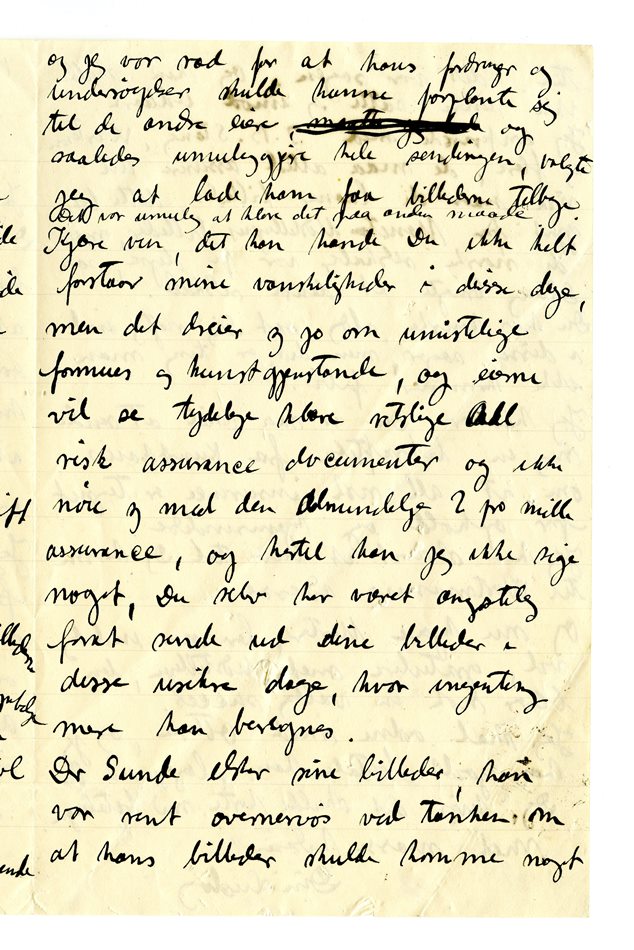 og jeg var ræd for at hans fordringer og
undersøgelser skulde kunne forplante sig
til de andre eiere, og
saaledes umuliggjøre hele sendingen, valgte
jeg at lade ham faa billederne tilbage.
Det var umulig at klare det paa anden maade
Kjære ven, det kan hænde Du ikke helt
forstaar mine vanskeligheder i disse dage,
men det dreier sig jo om umistelige
formues og kunstgjenstande, og eierne
vil se tydelige klare retslige All
risk assurance documenter og ikke
nøie sig med den almindelige 2 pro mille
assurance, og hertil kan jeg ikke sige
noget, Du selv har været ængstelig
forat sende ud dine billeder i
disse usikre dage, hvor ingenting
mere kan beregnes.
Dr Sunde elsker sine billeder, han
var rent overnervøs ved tanken om
at hans billeder skulde komme noget